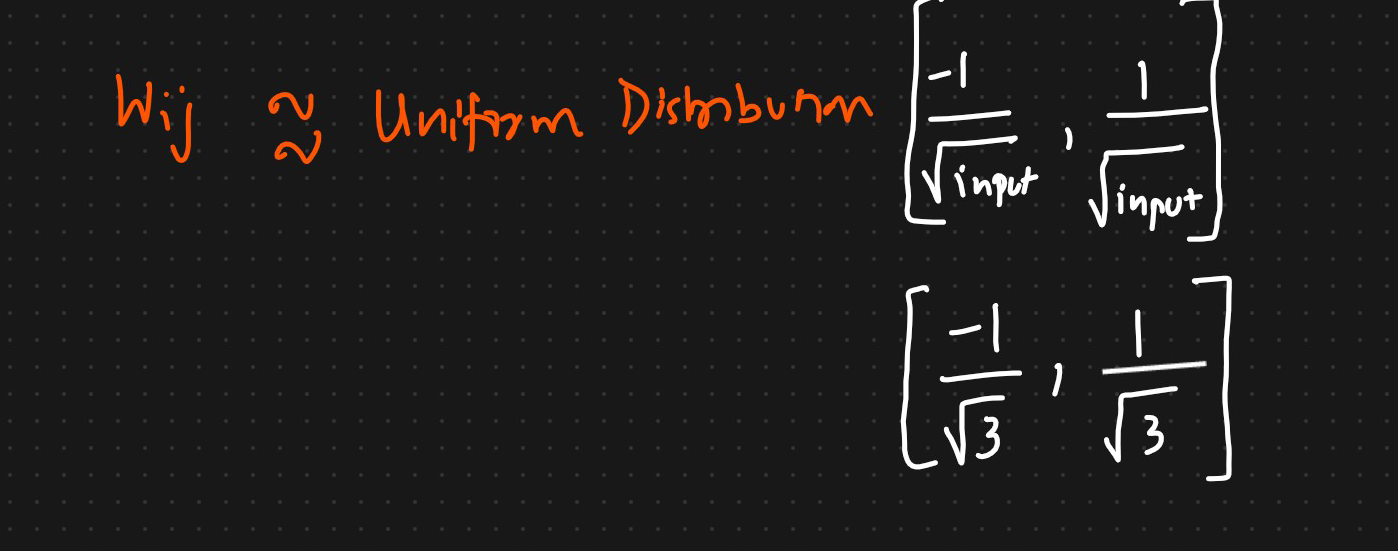 Wij ≈ Uniform Distribution [-1/√input , 1/√input]
[-1/√3 , 1/√3]